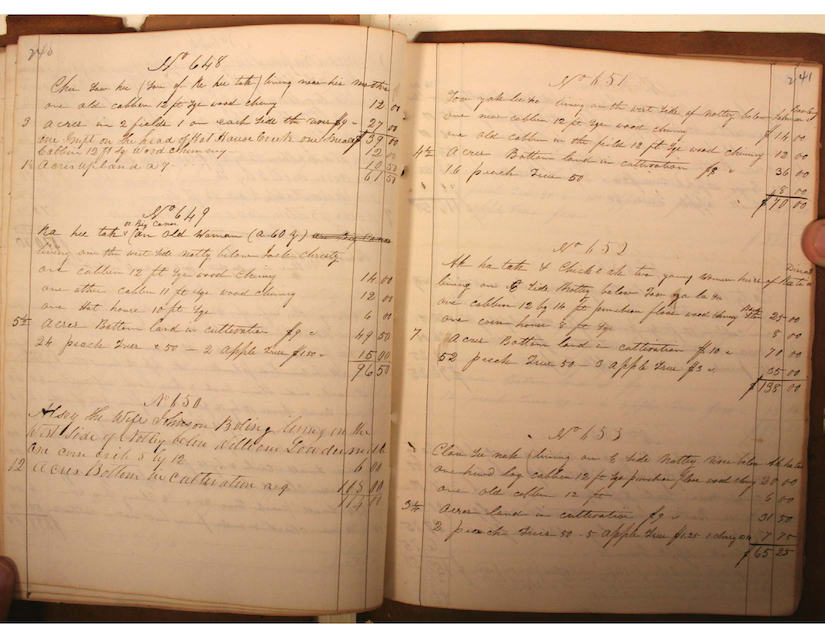 240
No 648
Chu
(Son of Ke hee tak) living near his mother
one old cabbin 12 ft Sqe wood chimy 12 00
3 acres in 2 fields 1 on each side the river $9 " 27 00
one Impt on the head of Hot House Creek one $ 39 00
Cabbin 12 ft Sq wood chimney 12 00
1 Acres upland a 7 10 50
61 50
No 649
or Big Canoe
Ka hee tak (an Old Woman (a 60.y.) are Big Canoe
living on the west Side notty below Jack Christy
one cabbin 12 ft Sqe wood Chimy 14 00
one other cabbin 11 ft Sqe wood Chimy 12 00
one Hot house 10 ft Sqe 6 00
5 1/2 Acres Bottom land in cultivation $9 " 49 50
24 peach Trees " 50 - 2 Apple Trees $1.50 " 15 00
96 50
No 650
the Wife Johnson Boling living on the
West Side of Notty below William
One corn crib 8 by 12 6 00
12 Acres Bottom in Cultivation a 9 108 00
114 00
241
No 651
living on the west Side of Notty below
one new cabbin 12 ft Sqe wood chimy $ 14 00
one old cabbin in the field 12 ft Sqe wood Chimny 12 00
4 1/2 Acres Bottom land in cultivation $8 " 36 00
16 peach Trees 50 8 00
$ 70 00
No 652
Ah ha tak & Chick a ah two young Women
living on E Side Notty below
one cabbin 12 by 14 ft puncheon floor wood chimy 25 00
one corn house 8 ft Sqe 5 00
7 Acres Bottom land in cultivation $10 " 70 00
52 peach Trees 50 - 3 Apple Trees $3 " 35 00
$ 135 00
No 653
living on E Side Notty River below
one hewd log cabbin 12 ft Sqe puncheon floor wood Chimy 20 00
one old cabbin 12 ft 6 00
3 1/2 Acres land in cultivation $9 " 31 50
2 peach Trees 50 - 5 Apple Trees $1.25 7 75
$ 65 25